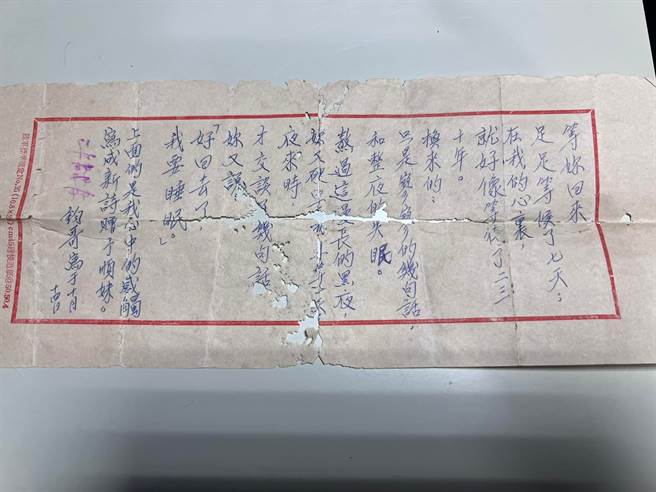 等妳回來
足足等候了七天；
在我的心裏，
就好像等待了二、三
十年。
換來的；
只是寥寥的幾句話，
和整夜的失眠。
熬過這漫長的黑夜，
妳又
夜」來時
才交談幾句話
妳又說：
「好回去了，
我要睡眠。」
上面的是我心中的感觸
寫成新詩贈予順妹。
鈞哥寫于十月